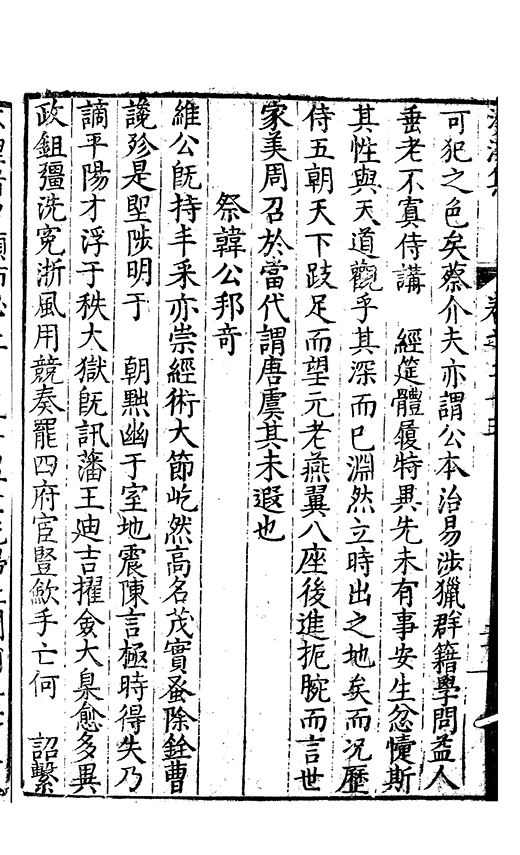 可犯之色矣蔡介夫亦謂公本治易涉獵群籍學問孟人
垂老不寘侍講　經筵體履特異先未有事安生忿懥斯
其性與天道觀乎其深而已淵然立時出之地矣而况歷
侍五朝天下跂足而望元老燕翼八座後進扼腕而言世
家美周召於當代謂唐虞其未遐也
祭韓公邦竒
維公旣持丰采亦崇經術大節屹然高名茂實蚤除銓曹
讒殄是堲陟明于　朝黜幽于室地震陳言極時得失乃
謫平陽才浮于秩大獄旣訊藩王廸吉擢僉大臬愈多異
政鉏彊洗寃浙風用競奏罷四府宦豎歛手亡何　詔繫